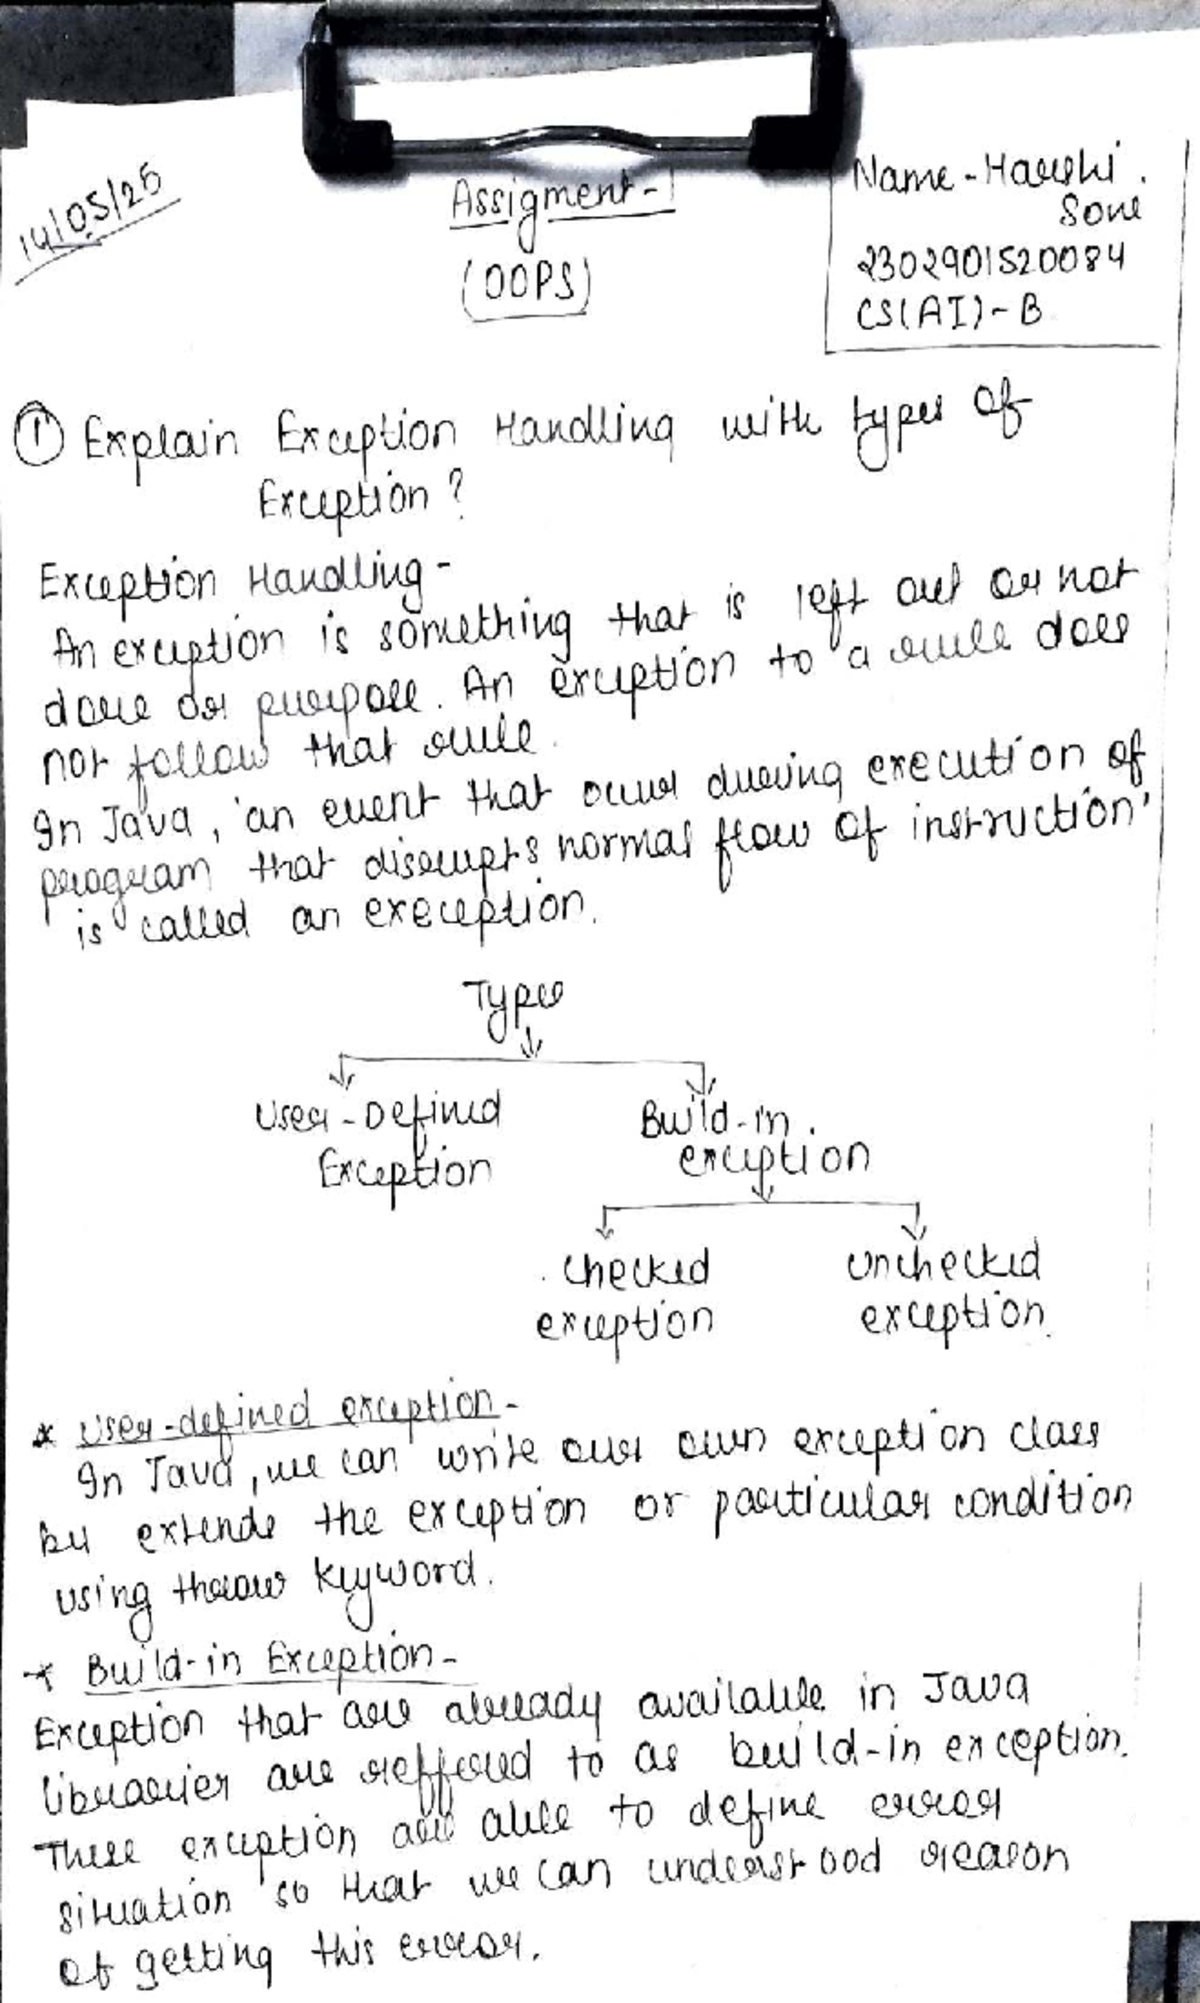 14/05/25
Assigment-1
(OOPS)
Name-Harshi
Soni
2302901520084
CS(AI)-B
① Explain Exception Handling with types of
Exception?
Exception Handling-
An exception is something that is left out or not
done on purpose. An exception to a rule does
not follow that rule.
In Java, 'an event that occurs during execution of
program that disrupts normal flow of instruction'
is called an exeception.
Types
User-Defined
Exception
Build-in
exception
checked
exception
unchecked
exception
* User-defined exception-
In Java, we can write our own exception class
by extends the exception or particular condition
using throw keyword.
* Build-in Exception-
Exception that are already available in Java
libraries are reffered to as build-in exception.
These exception are able to define error
situation so that we can understood reason
of getting this error.